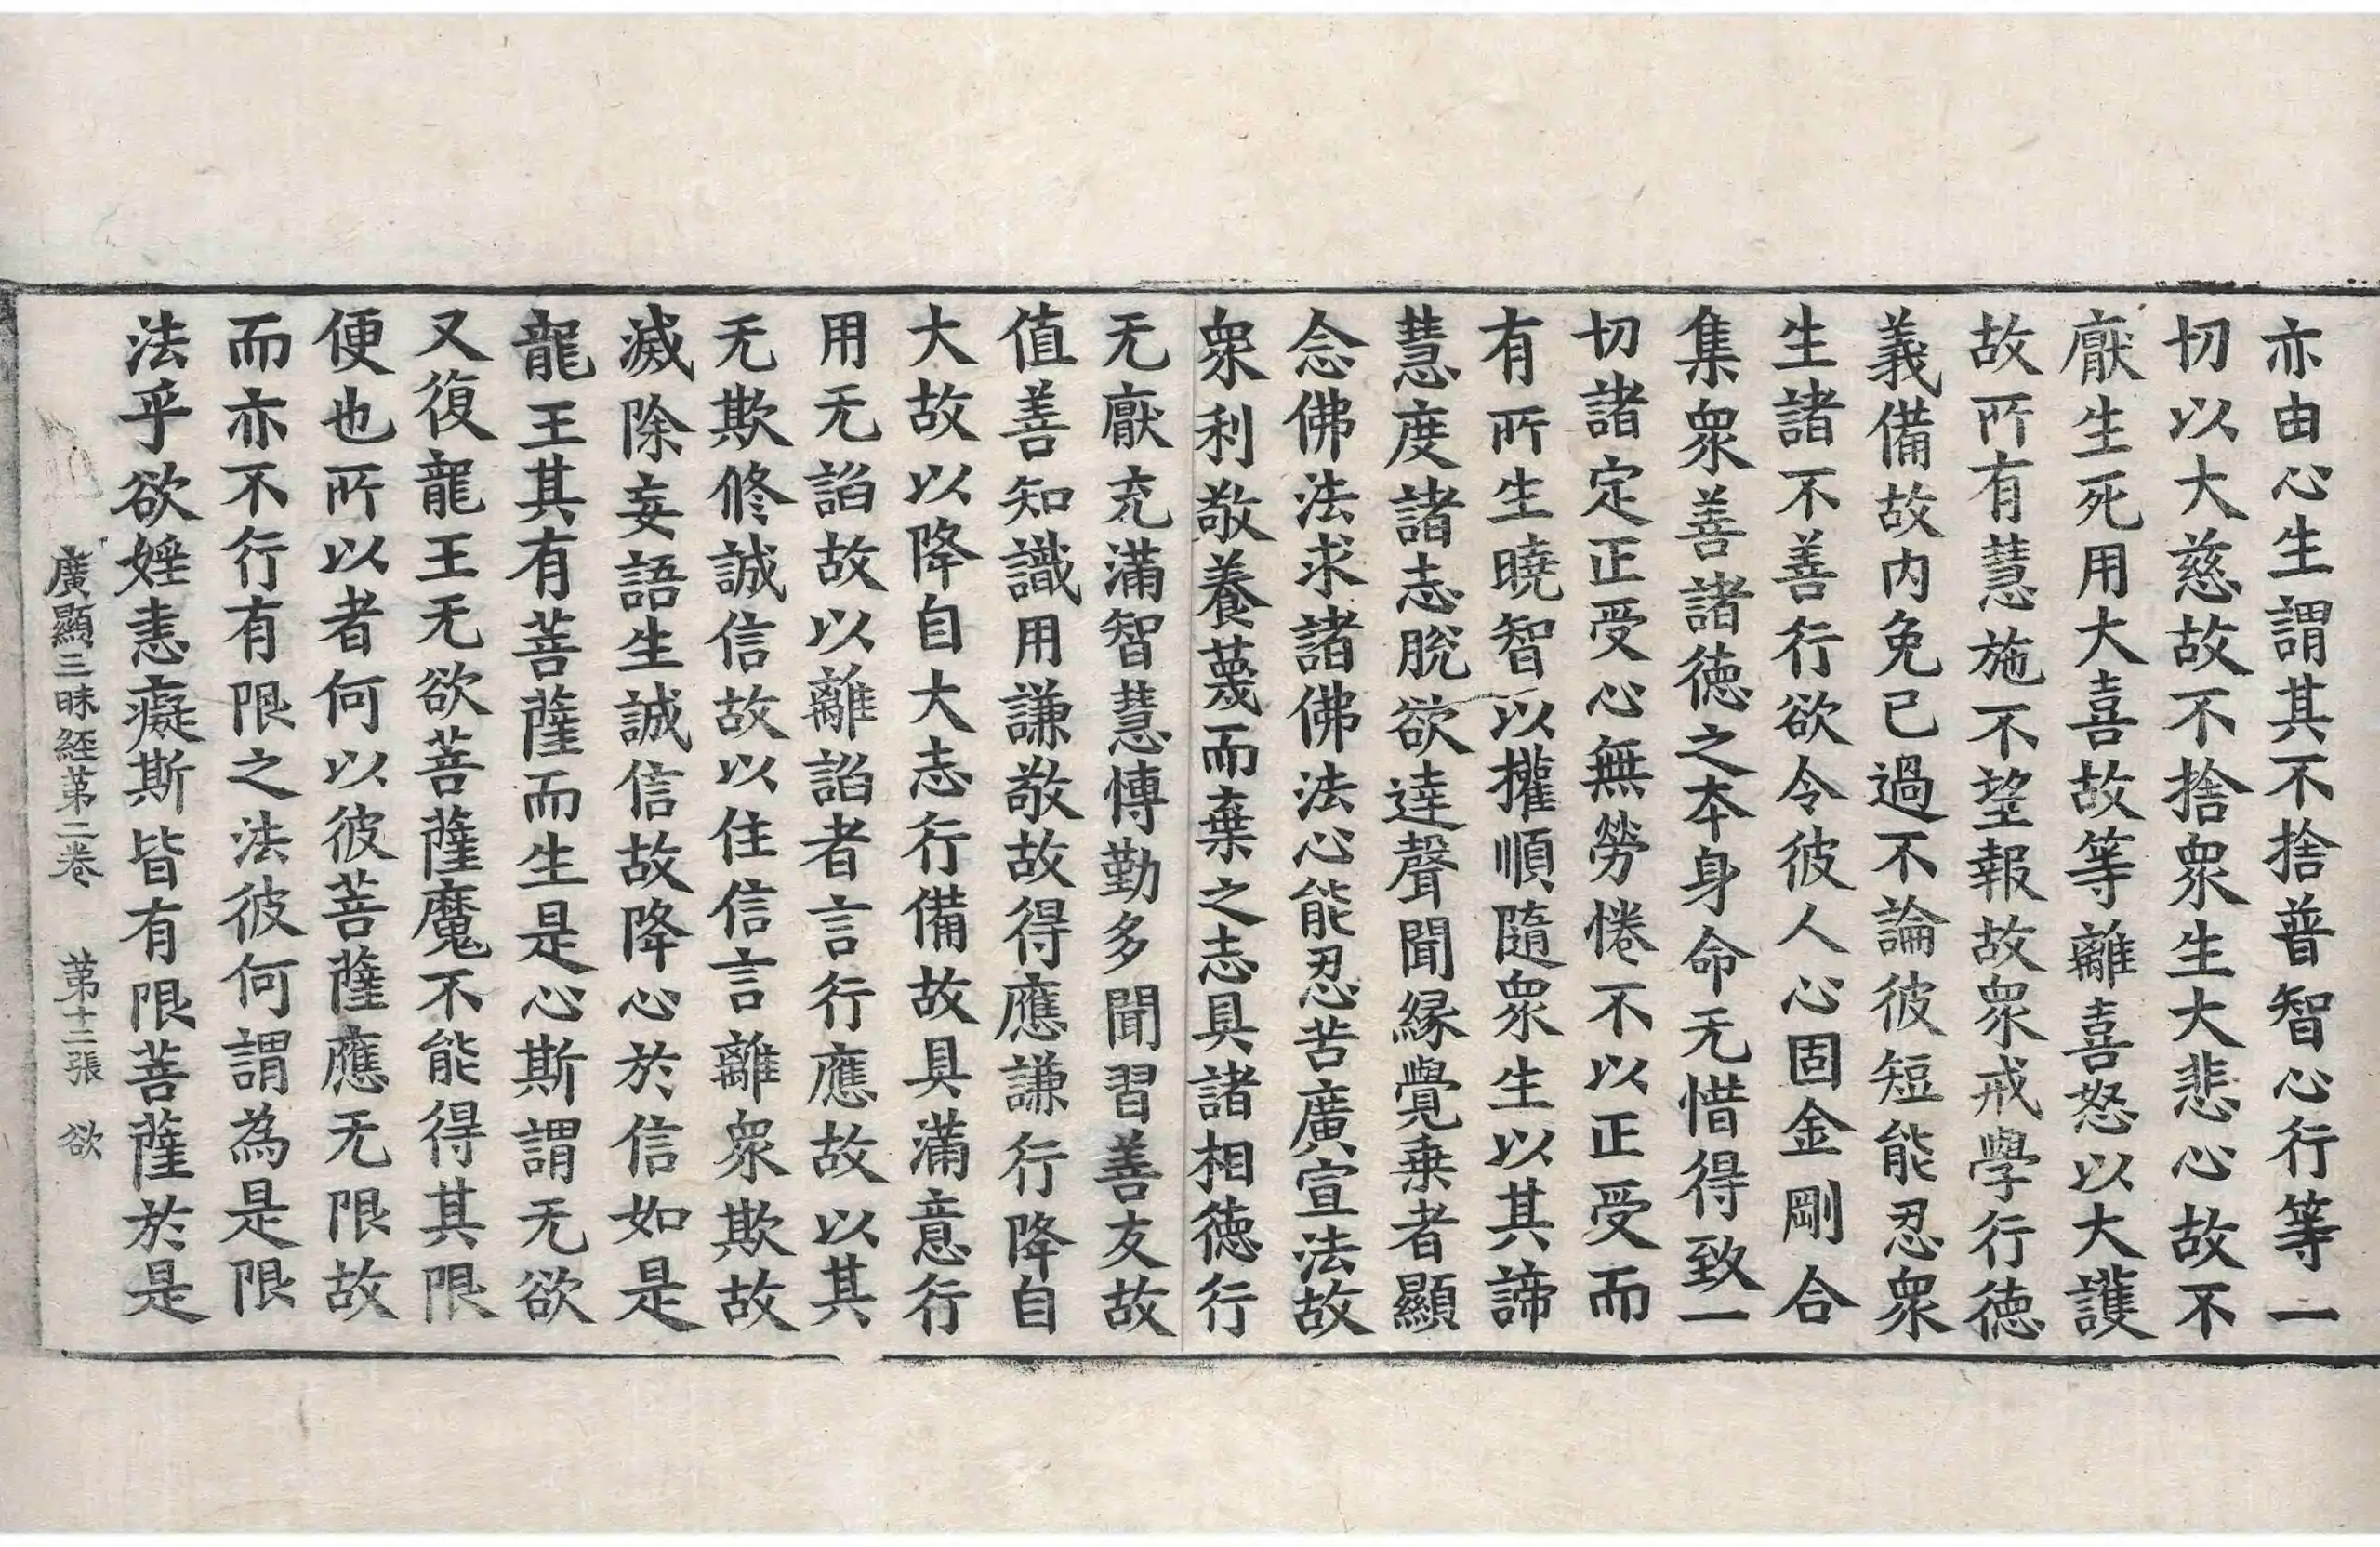 亦由心生謂其不捨普智心行等一
切以大慈故不捨衆生大悲心故不
厭生死用大喜故等離喜怒以大護
故所有慧施不望報故衆戒學行德
義備故内免已過不論彼短能忍衆
生諸不善行欲令彼人心固金剛合
集衆善諸德之本身命无惜得致一
切諸定正受心無勞惓不以正受而
有所生曉智以權順隨衆生以其諦
慧度諸志脫欲達聲聞緣覺乗者顯
念佛法求諸佛法心能忍苦廣宣法故
衆利敬養蔑而棄之志具諸相德行
无厭充滿智慧博勤多聞習善友故
值善知識用謙敬故得應謙行降自
大故以降自大志行備故具滿意行
用无諂故以離諂者言行應故以其
无欺修誠信故以住信言離衆欺故
滅除妄語生誠信故降心於信如是
龍王其有菩薩而生是心斯謂无欲
又復龍王无欲菩薩魔不能得其限
便也所以者何以彼菩薩應无限故
而亦不行有限之法彼何謂為是限
法乎欲婬恚癡斯皆有限菩薩於是
廣顯三昧經第二卷 第十二張 欲